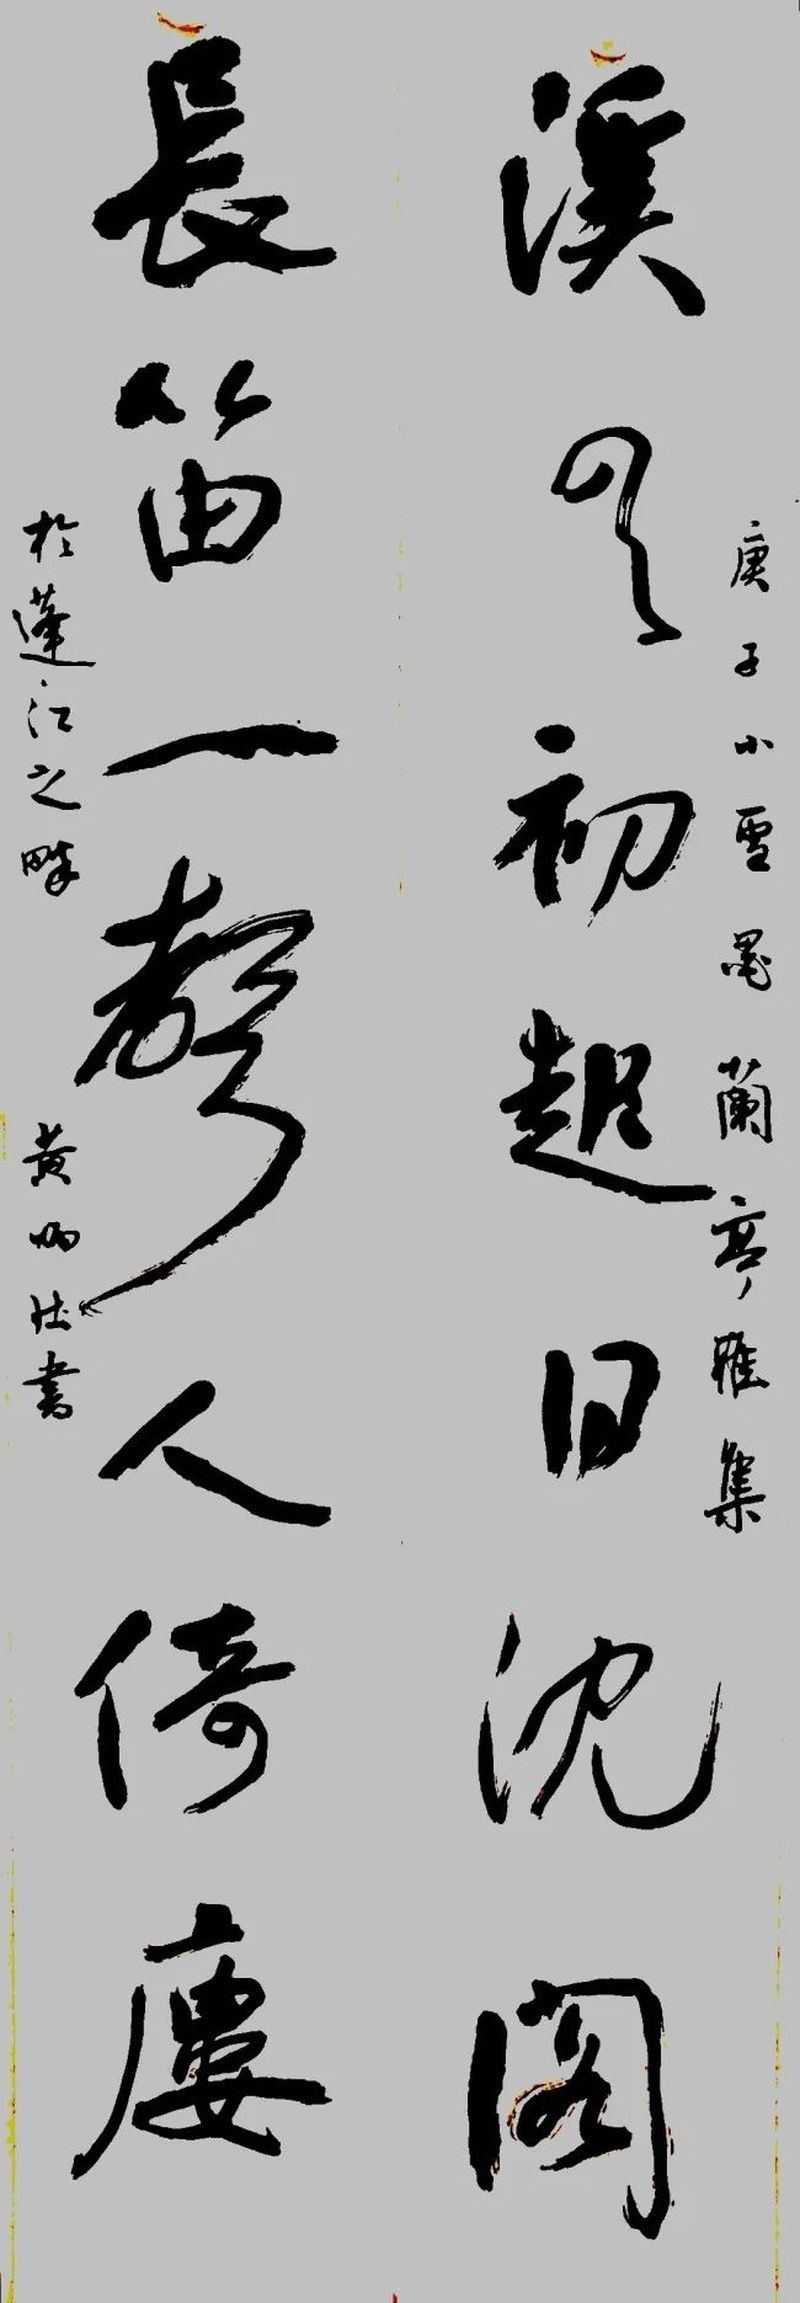 庚子小雪墨蘭亭雅集
溪云初起日沈閣
長笛一聲人倚廔
於蓬江之畔 黄書